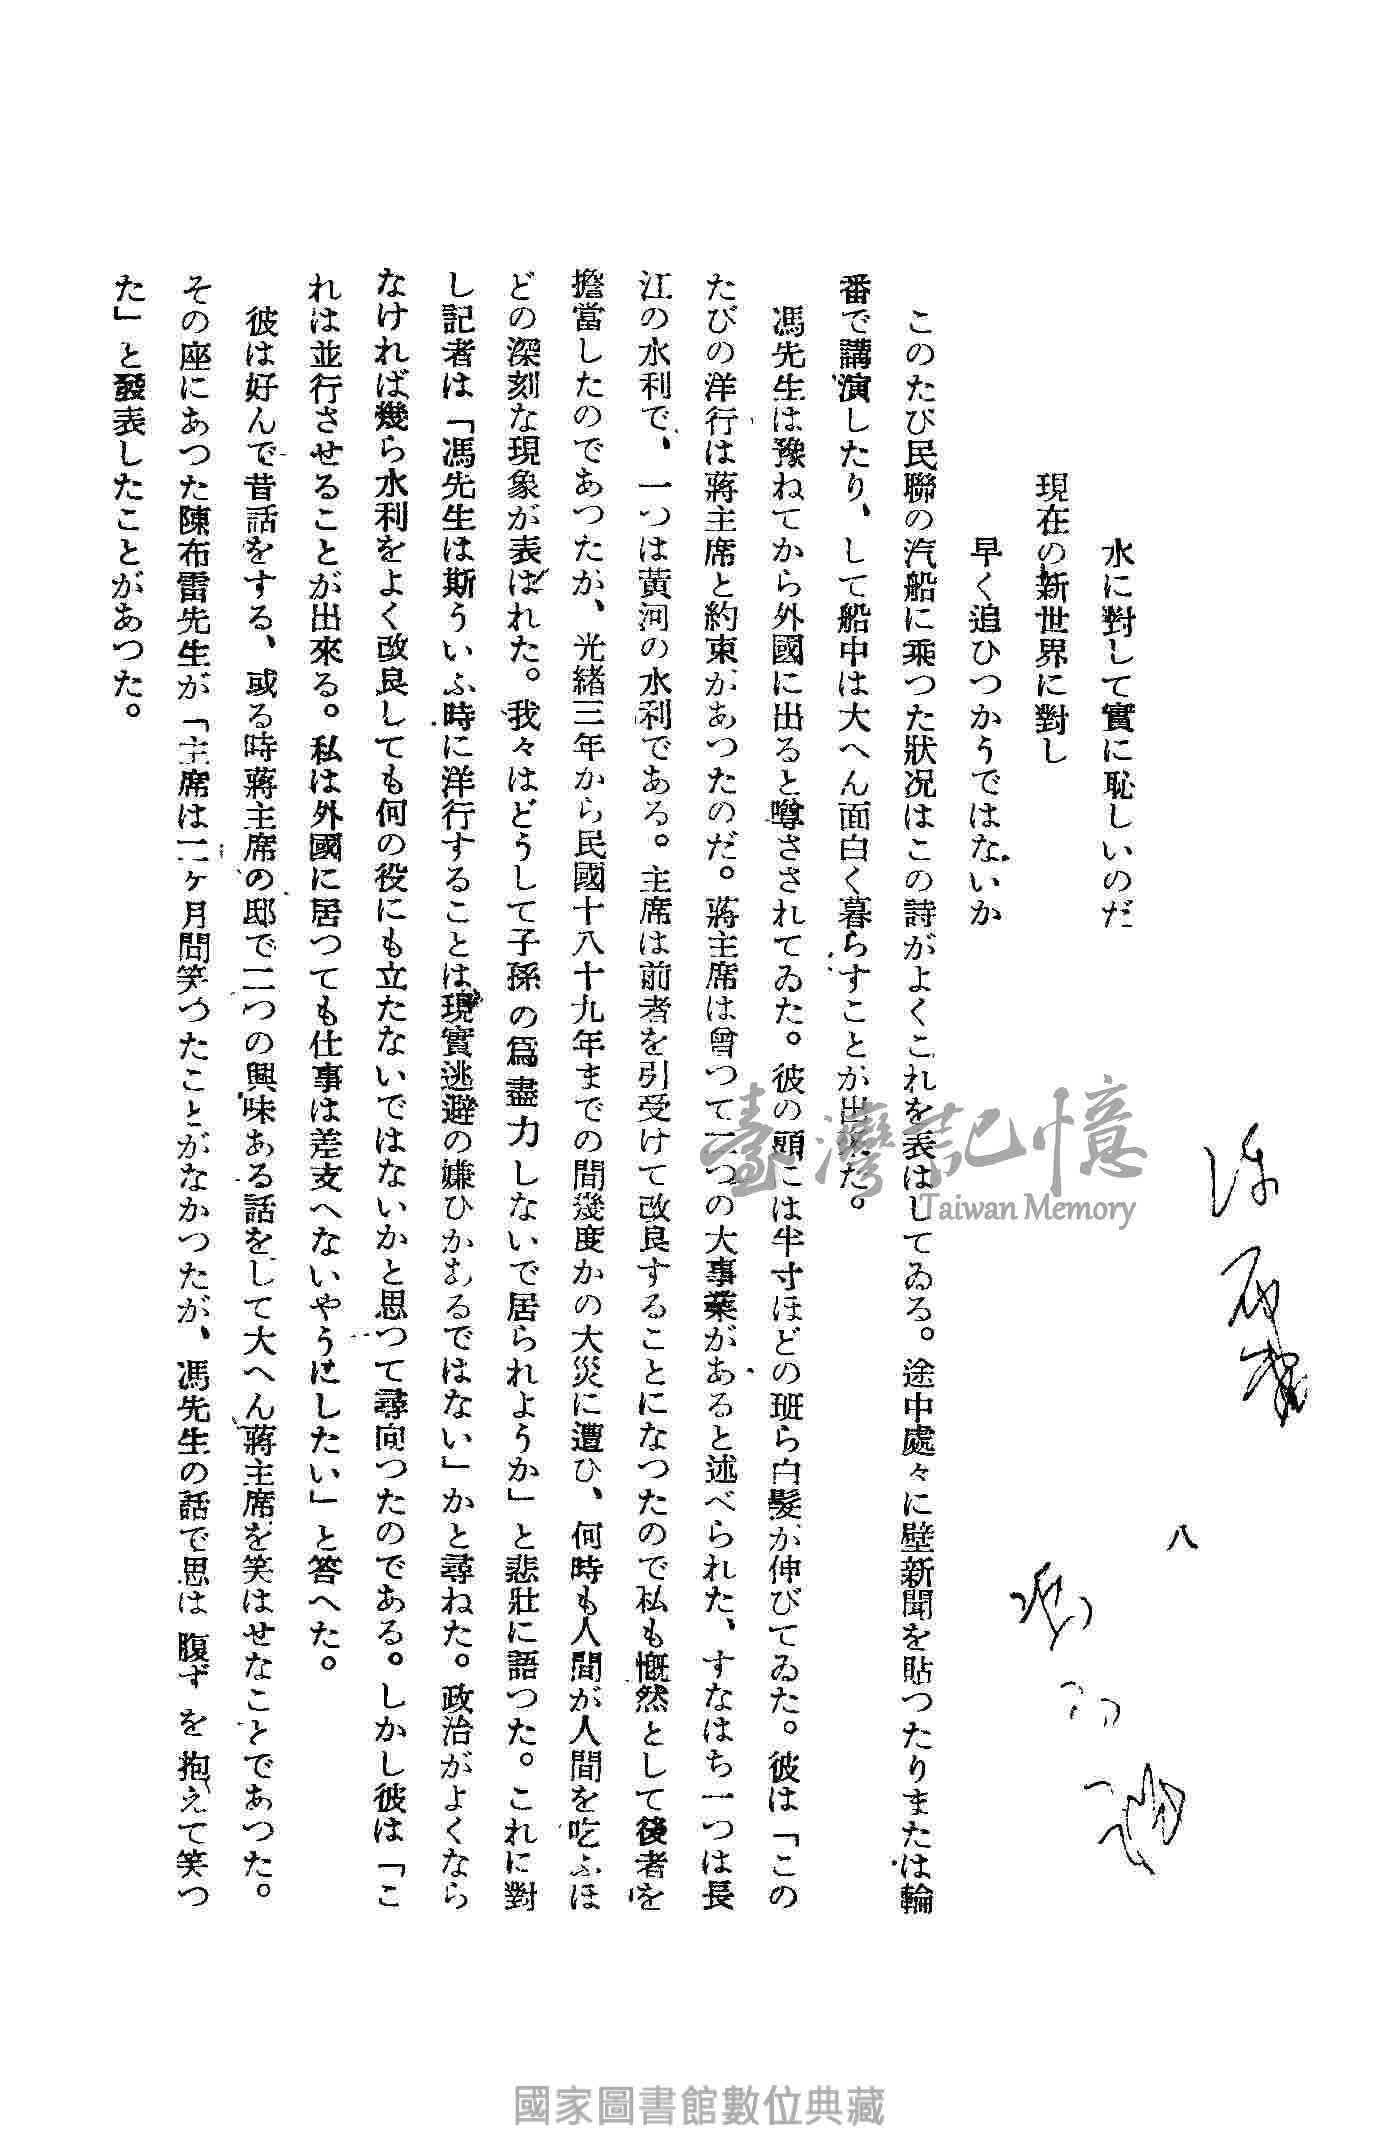 八
水に對して實に恥しいのだ
現在の新世界に對し
早く追ひつかうではないか
このたび民聯の汽船に乘つた狀況はこの詩がよくこれを表はしてゐる。途中處々に壁新聞を貼つたりまたは輪
番で講演したり、して船中は大へん面白く暮らすことが出來た。
馮先生は豫ねてから外國に出ると噂さされてゐた。彼の頭には半寸ほどの班ら白髮が伸びてゐた。彼は「この
たびの洋行は蔣主席と約束があつたのだ。蔣主席は曾つて二つの大事業があると述べられた、すなはち一つは長
江の水利で、一つは黃河の水利である。主席は前者を引受けて改良することになつたので私も慨然として後者を
擔當したのであつたが、光緖三年から民國十八十九年までの間幾度かの大災に遭ひ、何時も人間が人間を吃ふほ
どの深刻な現象が表はれた。我々はどうして子孫の爲盡力しないで居られようか」と悲壯に語つた。これに對
し記者は「馮先生は斯ういふ時に洋行することは現實逃避の嫌ひがあるではない」かと尋ねた。政治がよくなら
なければ幾ら水利をよく改良しても何の役にも立たないではないかと思つて尋向つたのである。しかし彼は「こ
れは並行させることが出來る。私は外國に居つても仕事は差支へないやうにしたい」と答へた。
彼は好んで昔話をする、或る時蔣主席の邸で二つの興味ある話をして大へん蔣主席を笑はせなことであつた。
その座にあつた陳布雷先生が「主席は二ヶ月間笑つたことがなかつたが、馮先生の話で思は腹ずを抱えて笑つ
た」と發表したことがあつた。
臺灣記憶
Taiwan Memory
國家圖書館數位典藏